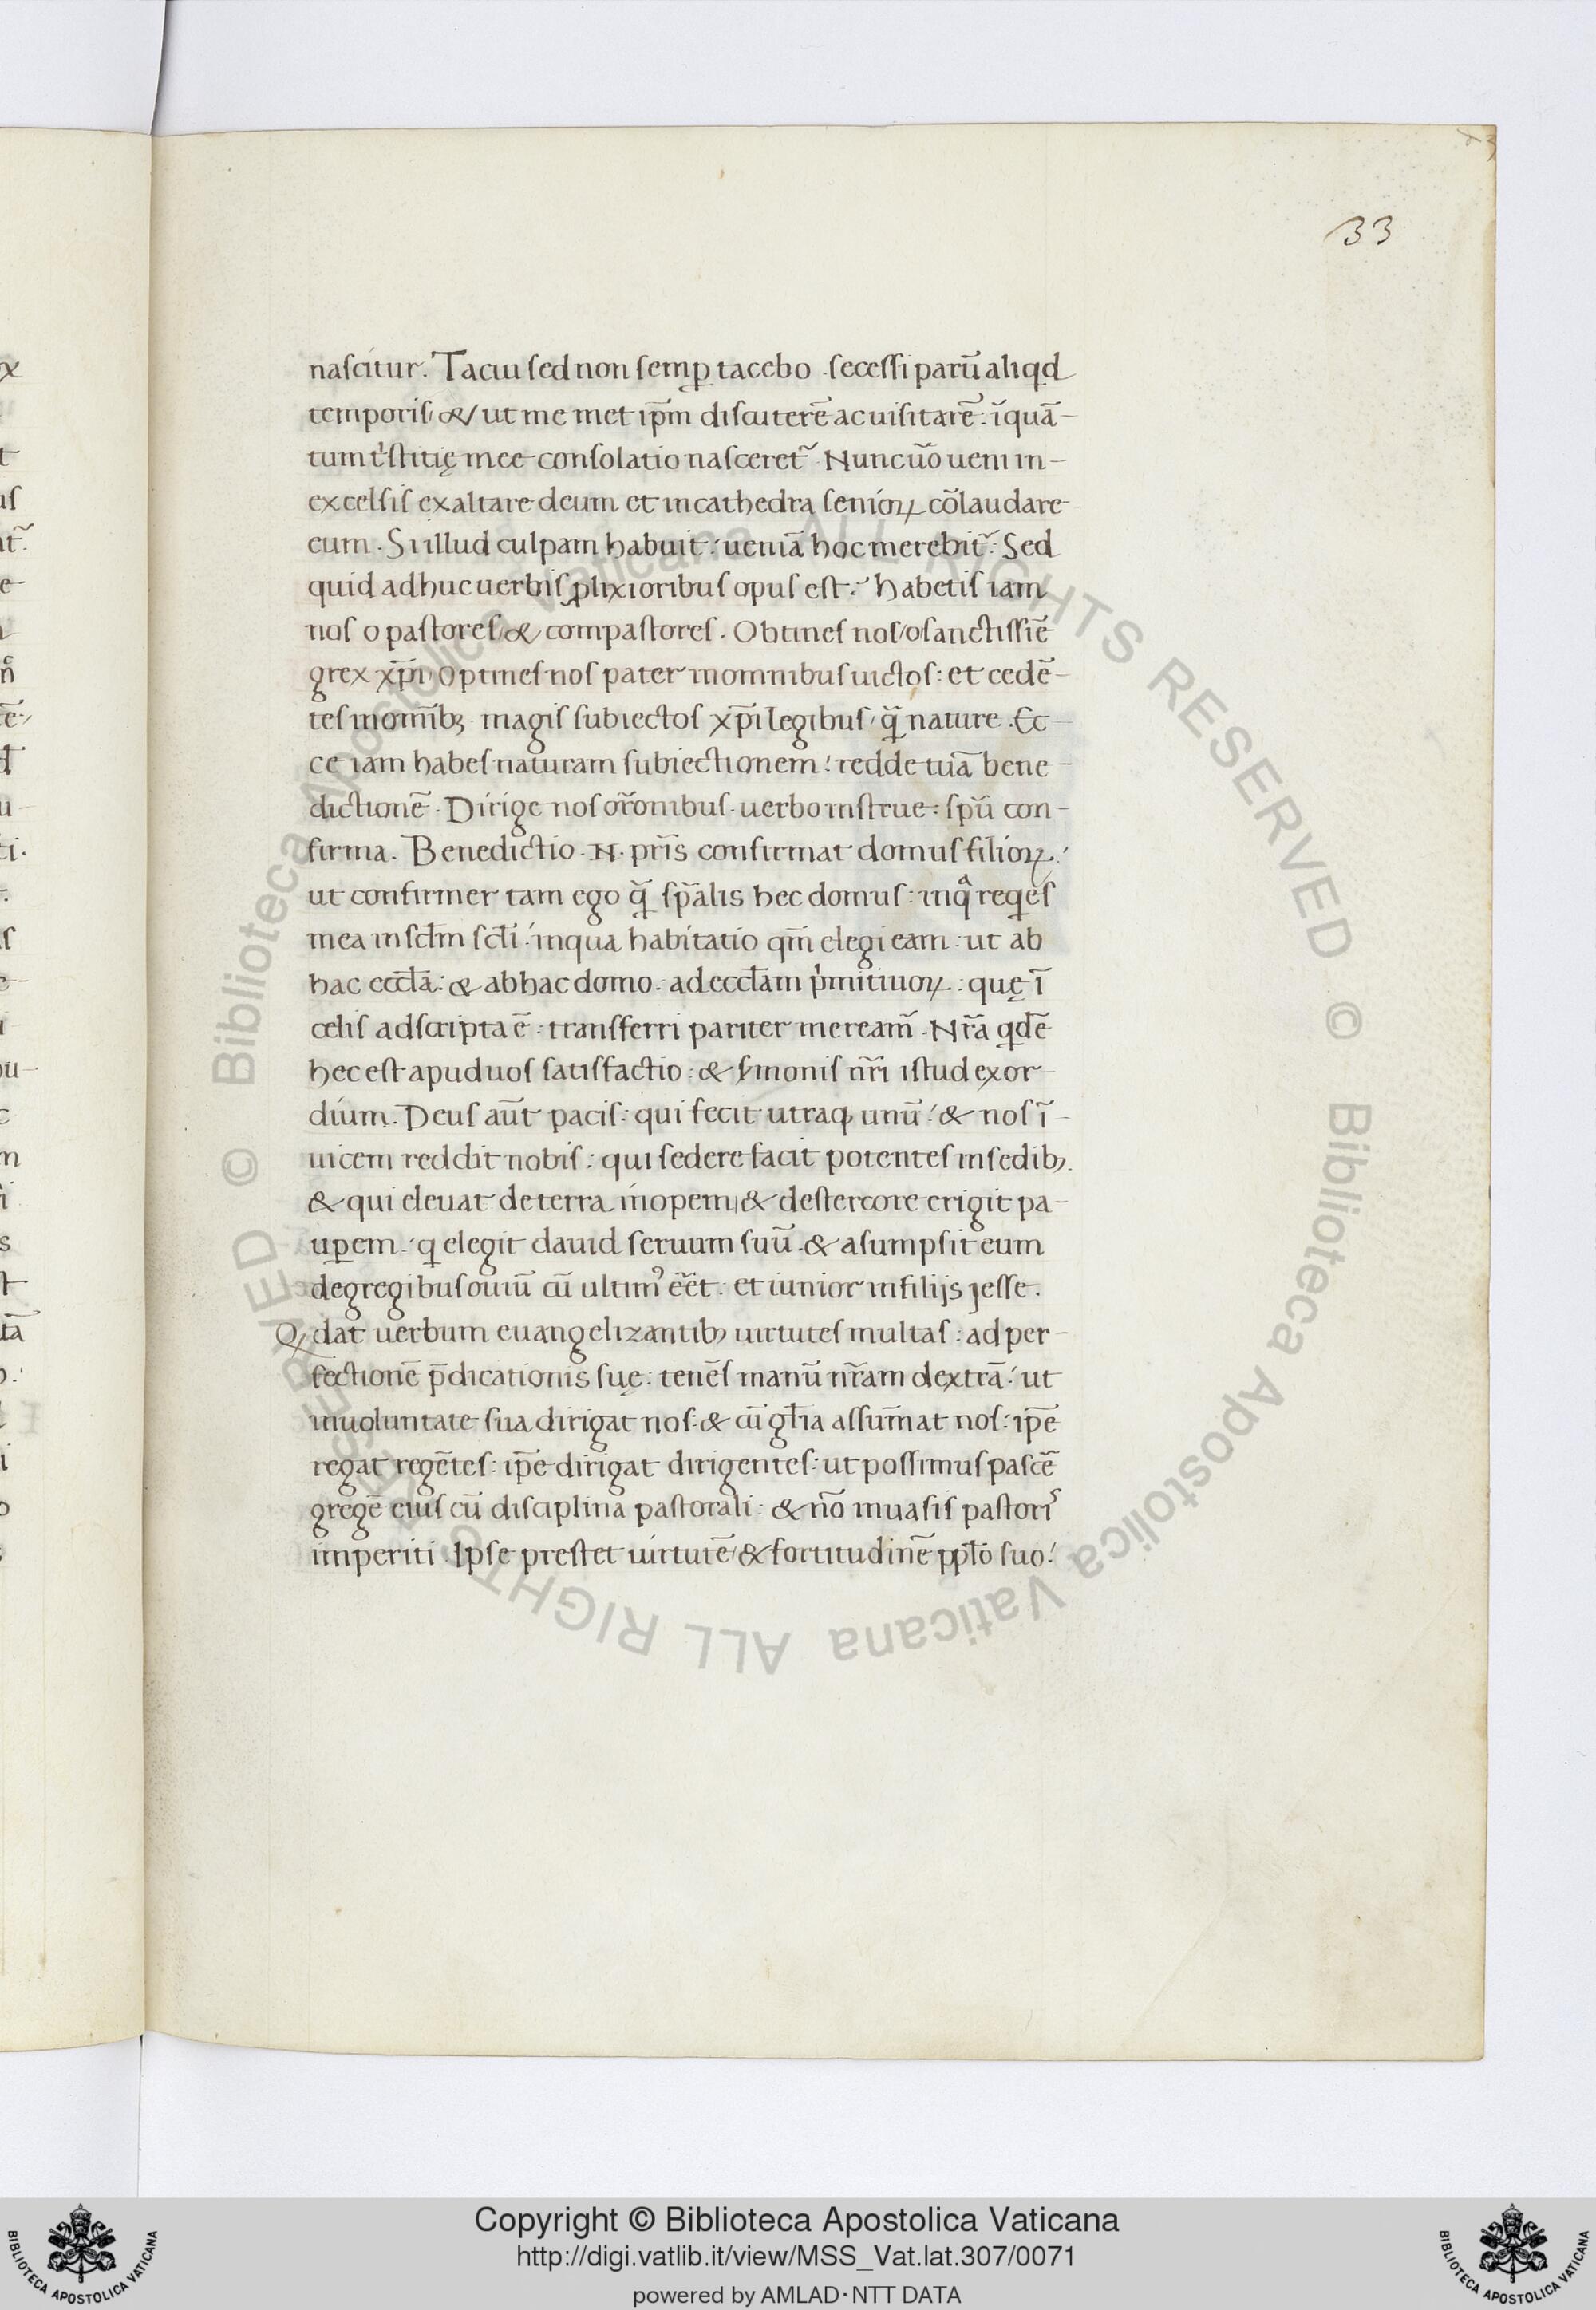 33
nascitur. Tacui sed non semꝑ tacebo. secessi parū aliqd
temporis & ut me met ip̄m discuterē ac uisitarē: ī quā-
tum tͥstitię mee consolatio nasceret᷑. Nunc ūo ueni in-
excelsis exaltare deum et in cathedra senioꝝ cōlaudare
eum. Si illud culpam habuit: ueniā hoc merebit᷑. Sed
quid adhuc uerbis ꝓlixioribus opus est? habetis iam
nos o pastores & compastores. Obtines nos o sanctissīe
grex xp̄i Optines nos pater in omnibus uictos: et cedē-
tes in omībꝫ magis subiectos xp̄i legibus, q̄ nature. Ec-
ce iam habes naturam subiectionem: redde tuā bene-
dictionē. Dirige nos or̄onibus. uerbo instrue: spū con-
firma. Benedictio. N. pr̄is confirmat domus filioꝝ:
ut confirmer tam ego q̄ sp̄alis hec domus: in qͣ reqes
mea in sc̄lm sc̄li: in qua habitatio qm̄ elegi eam: ut ab
hac eccl̄a: & ab hac domo: ad eccl̄am pͥmitiuoꝝ: quę ī
celis adscripta ē: transferri pariter meream᷑. Nr̄a qdē
hec est apud uos satisfactio: & s̄monis nr̄i istud exor
dium. Deus aūt pacis: qui fecit utraqꝫ unū: & nos ī-
uicem reddit nobis: qui sedere facit potentes in sedibꝫ.
& qui eleuat de terra inopem & de stercore erigit pa-
uꝑem: q elegit dauid seruum suū. & asumpsit eum
de gregibus ouiū cū ultimꝰ eēt. et iunior in filijs jesse.
Q, dat uerbum euangelizantibꝫ uirtutes multas: ad per-
fectionē p̄dicationis suę: tenēs manū nr̄am dextrā: ut
in uoluntate sua dirigat nos: & cū gl̄ia assūmat nos: ip̄e
regat regētes: ip̄e dirigat dirigentes: ut possimus pascē
gregē eius cū disciplina pastorali: & nō in uasis pastorꝭ
imperiti. Ipse prestet uirtutē & fortitudinē ppl̄o suo:
Copyright © Biblioteca Apostolica Vaticana
http://digi.vatlib.it/view/MSS_Vat.lat.307/0071
powered by AMLAD·NTT DATA